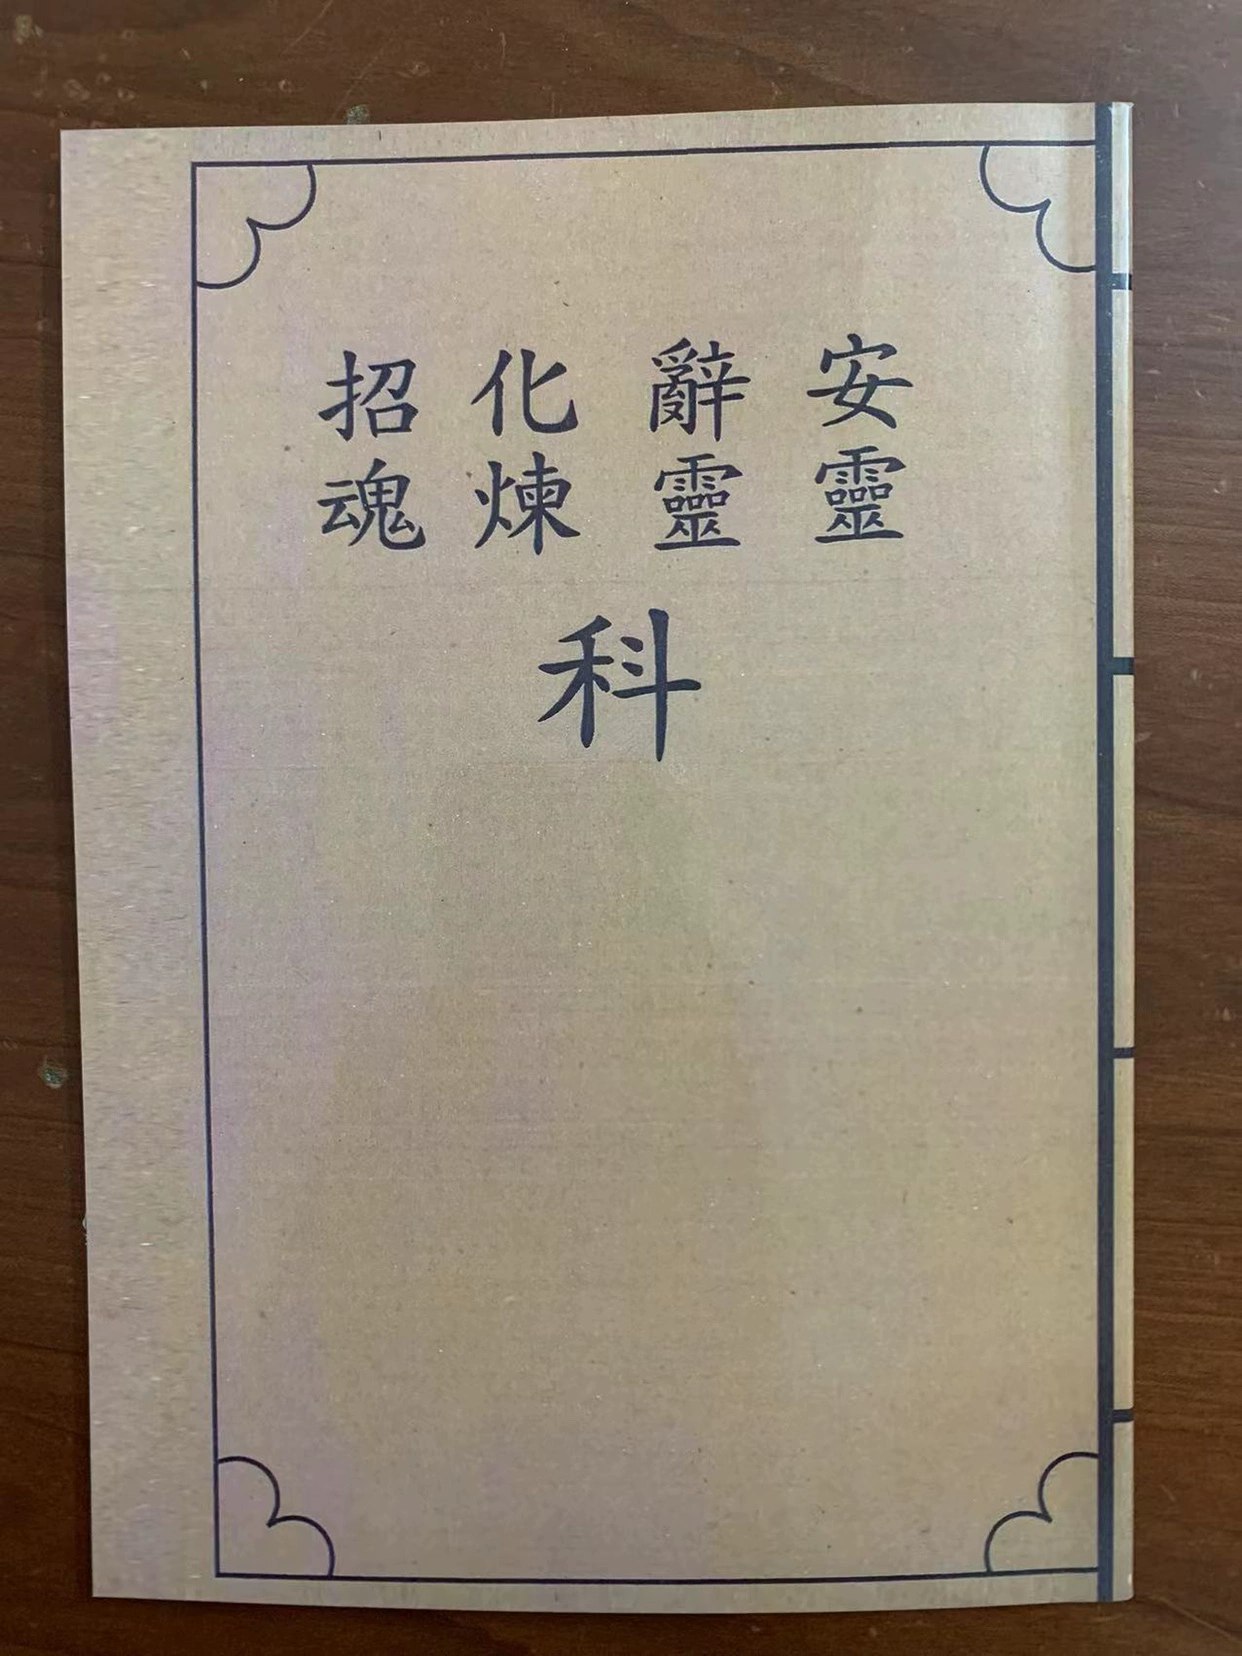 安靈
辭靈
化煉
招魂
科